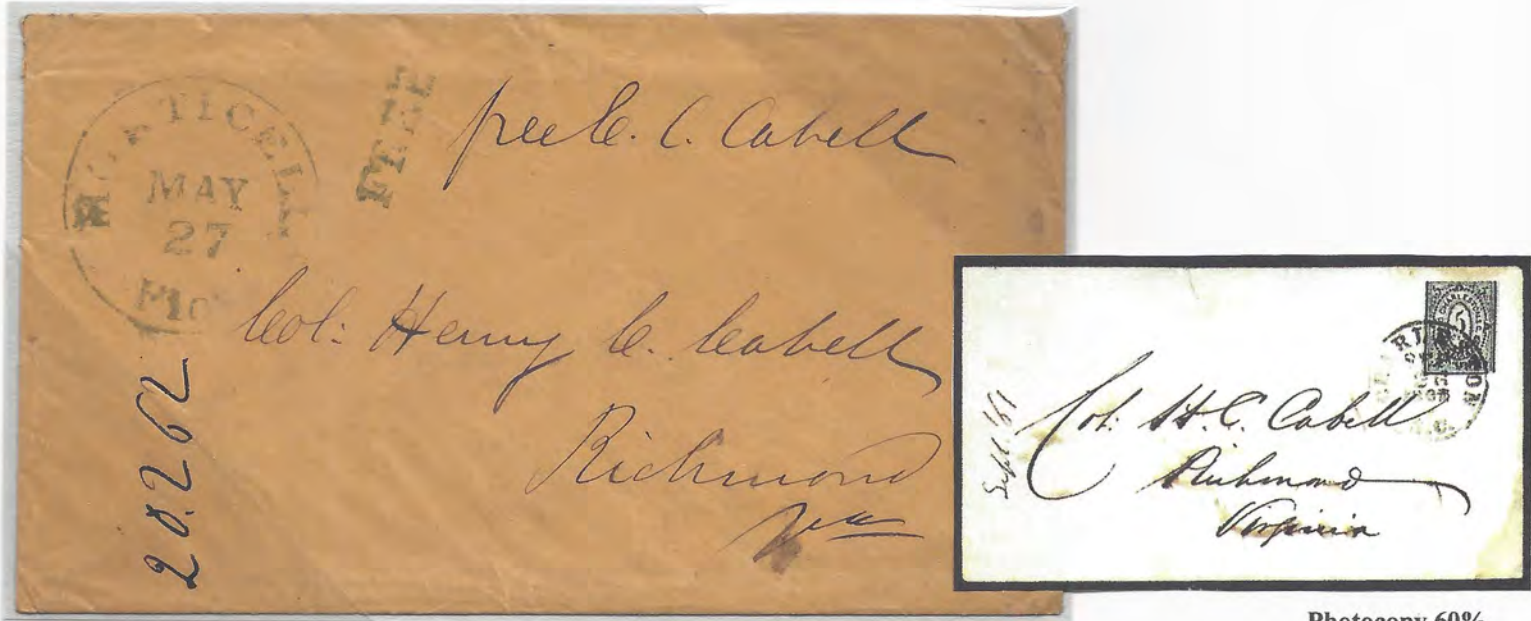 MONTICELLO
MAY
27
Flo
FREE
free E. C. Cabell
Col: Henry C. Cabell
Richmond
Va
20.262
CHARLESTON
S.C.
5
Sept 1/61
Col: H. C. Cabell
Richmond
Virginia
Photocopy 60%